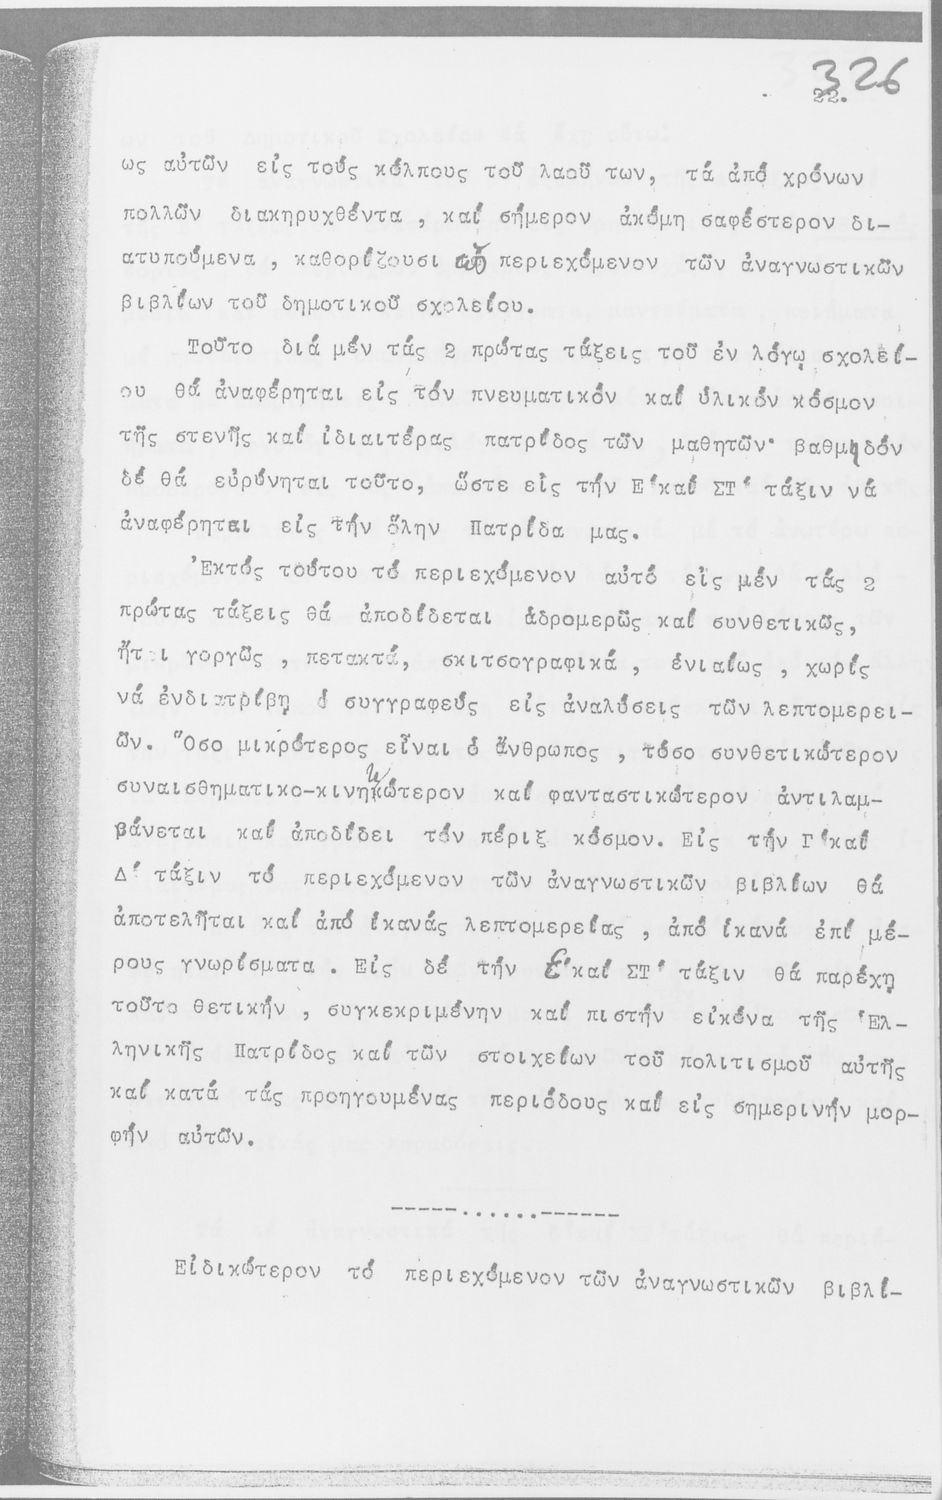 326
22.
ως αὐτῶν εἰς τούς κόλπους τοῦ λαοῦ των, τά ἀπό χρόνων
πολλῶν διακηρυχθέντα , καί σήμερον ἀκόμη σαφέστερον δι-
ατυπούμενα , καθορίζουσι περιεχόμενον τῶν ἀναγνωστικῶν
βιβλίων τοῦ δημοτικοῦ σχολείου.
Τοῦτο διά μέν τάς 2 πρώτας τάξεις τοῦ ἐν λόγῳ σχολεί-
ου θά ἀναφέρηται εἰς τόν πνευματικόν καί ὑλικόν κόσμον
τῆς στενῆς καί ἰδιαιτέρας πατρίδος τῶν μαθητῶν· βαθμηδόν
δέ θά εὐρύνηται τοῦτο, ὥστε εἰς τήν Ε΄καί ΣΤ΄ τάξιν νά
ἀναφέρηται εἰς τήν ὅλην Πατρίδα μας.
Ἐκτός τούτου τό περιεχόμενον αὐτό εἰς μέν τάς 2
πρώτας τάξεις θά ἀποδίδεται ἁδρομερῶς καί συνθετικῶς,
ἤτοι γοργῶς , πετακτά, σκιτσογραφικά , ἑνιαίως , χωρίς
νά ἐνδιατρίβῃ ὁ συγγραφεύς εἰς ἀναλύσεις τῶν λεπτομερει-
ῶν. Ὅσο μικρότερος εἶναι ὁ ἄνθρωπος , τόσο συνθετικώτερον
συναισθηματικο-κινηκώτερον καί φανταστικώτερον ἀντιλαμ-
βάνεται καί ἀποδίδει τόν πέριξ κόσμον. Εἰς τήν Γ΄καί
Δ΄ τάξιν τό περιεχόμενον τῶν ἀναγνωστικῶν βιβλίων θά
ἀποτελῆται καί ἀπό ἱκανάς λεπτομερείας , ἀπό ἱκανά ἐπί μέ-
ρους γνωρίσματα . Εἰς δέ τήν Ε΄καί ΣΤ΄ τάξιν θά παρέχῃ
τοῦτο θετικήν , συγκεκριμένην καί πιστήν εἰκόνα τῆς Ἑλ-
ληνικῆς Πατρίδος καί τῶν στοιχείων τοῦ πολιτισμοῦ αὐτῆς
καί κατά τάς προηγουμένας περιόδους καί εἰς σημερινήν μορ-
φήν αὐτῶν.
-----......------
Εἰδικώτερον τό περιεχόμενον τῶν ἀναγνωστικῶν βιβλί-